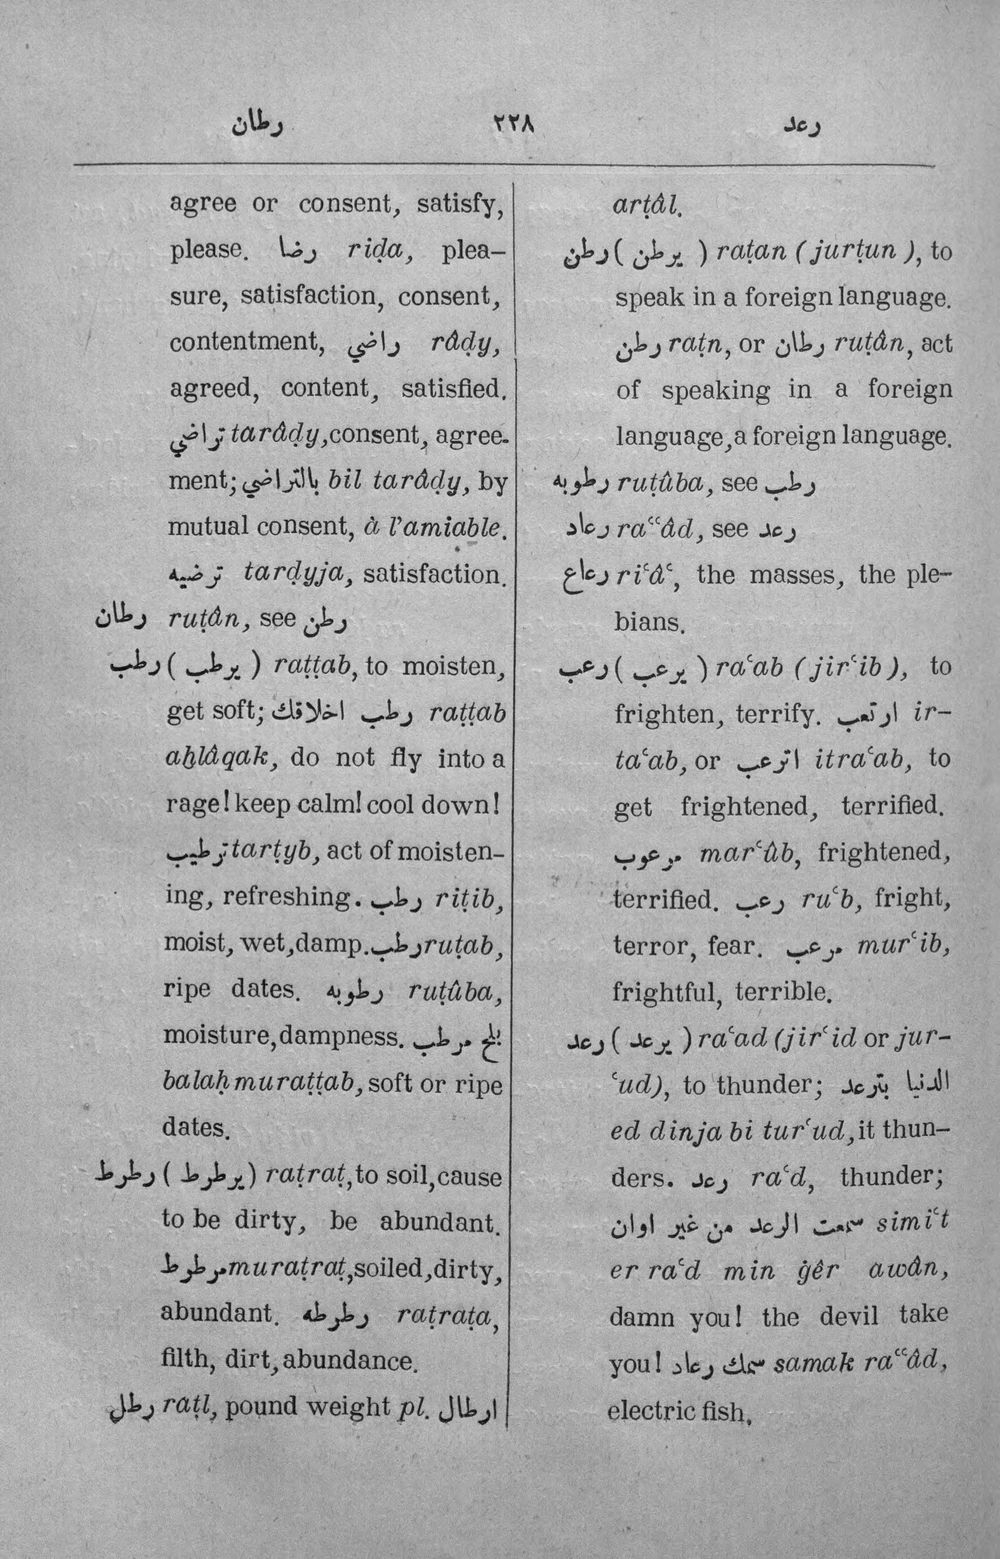 رطان ٢٢٨ رعد
agree or consent, satisfy,
please. رضا riḍa, plea-
sure, satisfaction, consent,
contentment, راضي râḍy,
agreed, content, satisfied.
تراضي tarâḍy, consent, agree-
ment; بالتراضي bil tarâḍy, by
mutual consent, à l'amiable.
ترضيه tarḍyja, satisfaction.
رطان ruṭân, see رطن
رطب (يرطب) raṭṭab, to moisten,
get soft; رطب اخلاقك raṭṭab
aẖlâqak, do not fly into a
rage! keep calm! cool down!
ترطيب tarṭyb, act of moisten-
ing, refreshing. رطب riṭib,
moist, wet, damp. رطب ruṭab,
ripe dates. رطوبه ruṭûba,
moisture, dampness. بلح مرطب
balaḥ muraṭṭab, soft or ripe
dates.
رطرط (يرطرط) raṭraṭ, to soil, cause
to be dirty, be abundant.
مرطرط muraṭraṭ, soiled, dirty,
abundant. رطرطه raṭraṭa,
filth, dirt, abundance.
رطل raṭl, pound weight pl. ارطال
arṭâl.
رطن (يرطن) raṭan (jurṭun), to
speak in a foreign language.
رطن raṭn, or رطان ruṭân, act
of speaking in a foreign
language, a foreign language.
رطوبه ruṭûba, see رطب
رعاد raʿʿâd, see رعد
رعاع riʿâʿ, the masses, the ple-
bians.
رعب (يرعب) raʿab (jirʿib), to
frighten, terrify. ارتعب ir-
taʿab, or اترعب itraʿab, to
get frightened, terrified.
مرعوب marʿûb, frightened,
terrified. رعب ruʿb, fright,
terror, fear. مرعب murʿib,
frightful, terrible.
رعد (يرعد) raʿad (jirʿid or jur-
ʿud), to thunder; الدنيا بترعد
ed dinja bi turʿud, it thun-
ders. رعد raʿd, thunder;
سمعت الرعد من غير اوان simiʿt
er raʿd min ġêr awân,
damn you! the devil take
you! سمك رعاد samak raʿʿâd,
electric fish.